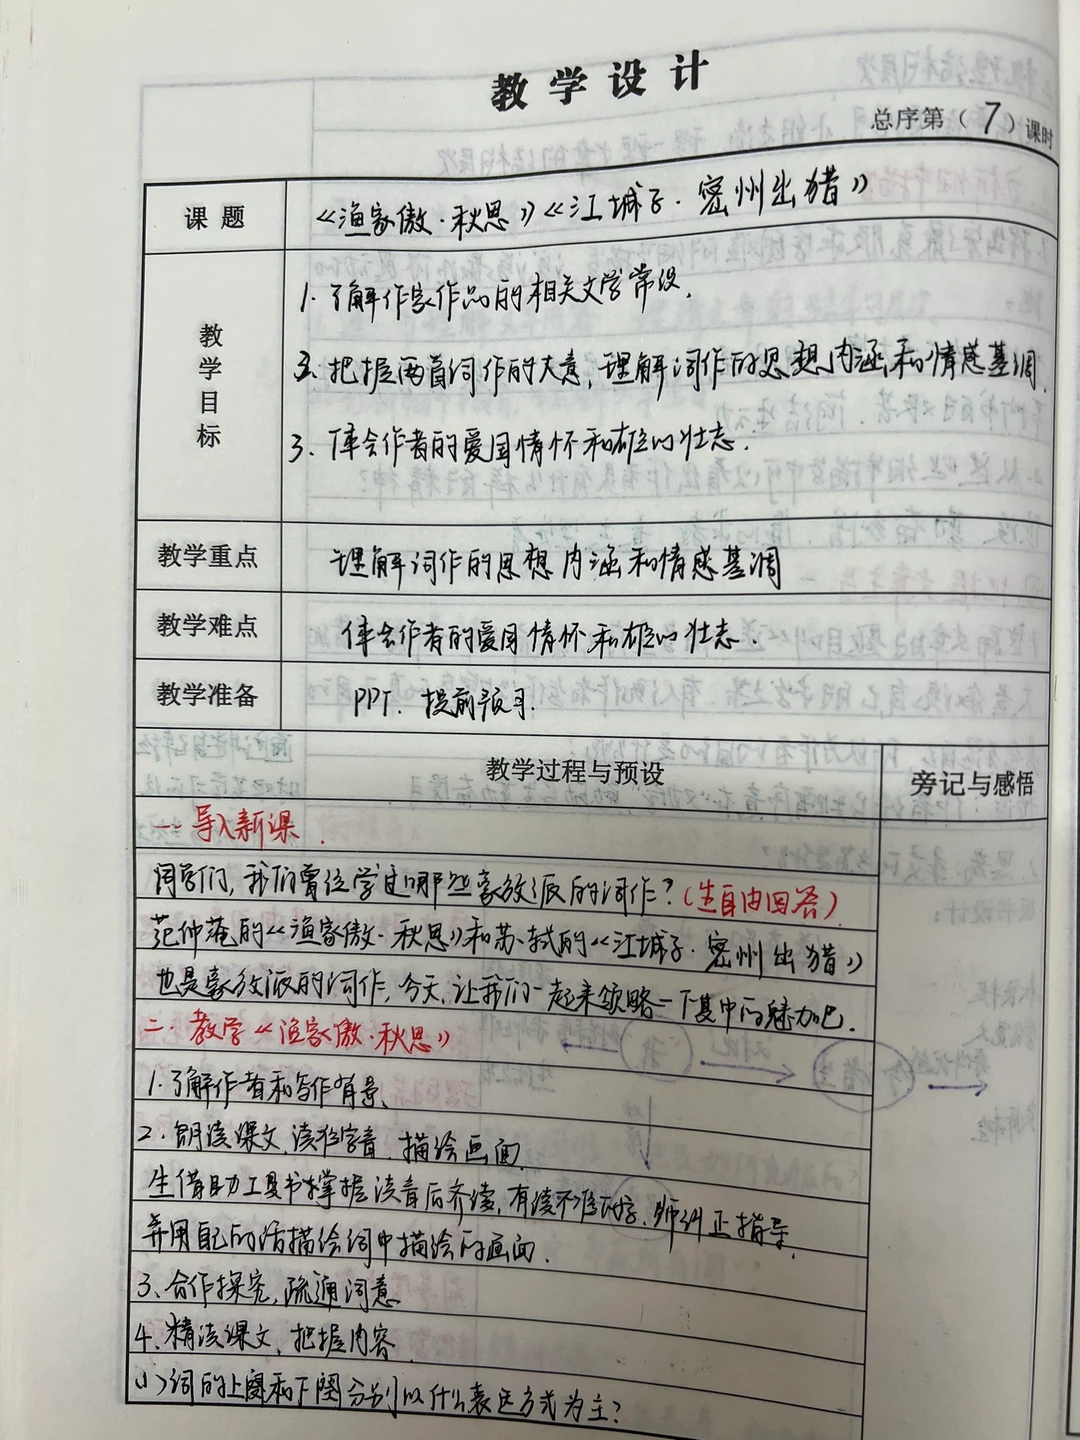 教学设计
总序第（7）课时
课题
《渔家傲·秋思》《江城子·密州出猎》
教学目标
1. 了解作家作品的相关文学常识.
2. 把握两首词作的大意，理解词作的思想内涵和情感基调.
3. 体会作者的爱国情怀和雄心壮志.
教学重点
理解词作的思想内涵和情感基调
教学难点
体会作者的爱国情怀和雄心壮志.
教学准备
PPT. 提前预习.
教学过程与预设
旁记与感悟
一. 导入新课.
同学们，我们曾经学过哪些豪放派的词作？（生自由回答）
范仲淹的《渔家傲·秋思》和苏轼的《江城子·密州出猎》
也是豪放派的词作，今天，让我们一起来领略一下其中的魅力吧.
二. 教学《渔家傲·秋思》
1. 了解作者和写作背景、
2. 朗读课文，读准字音，描绘画面.
生借助工具书掌握读音后齐读，有读不准的字，师纠正指导，
并用自己的话描绘词中描绘的画面.
3、合作探究，疏通词意
4、精读课文，把握内容.
(1)词的上阕和下阕分别以什么表达方式为主？